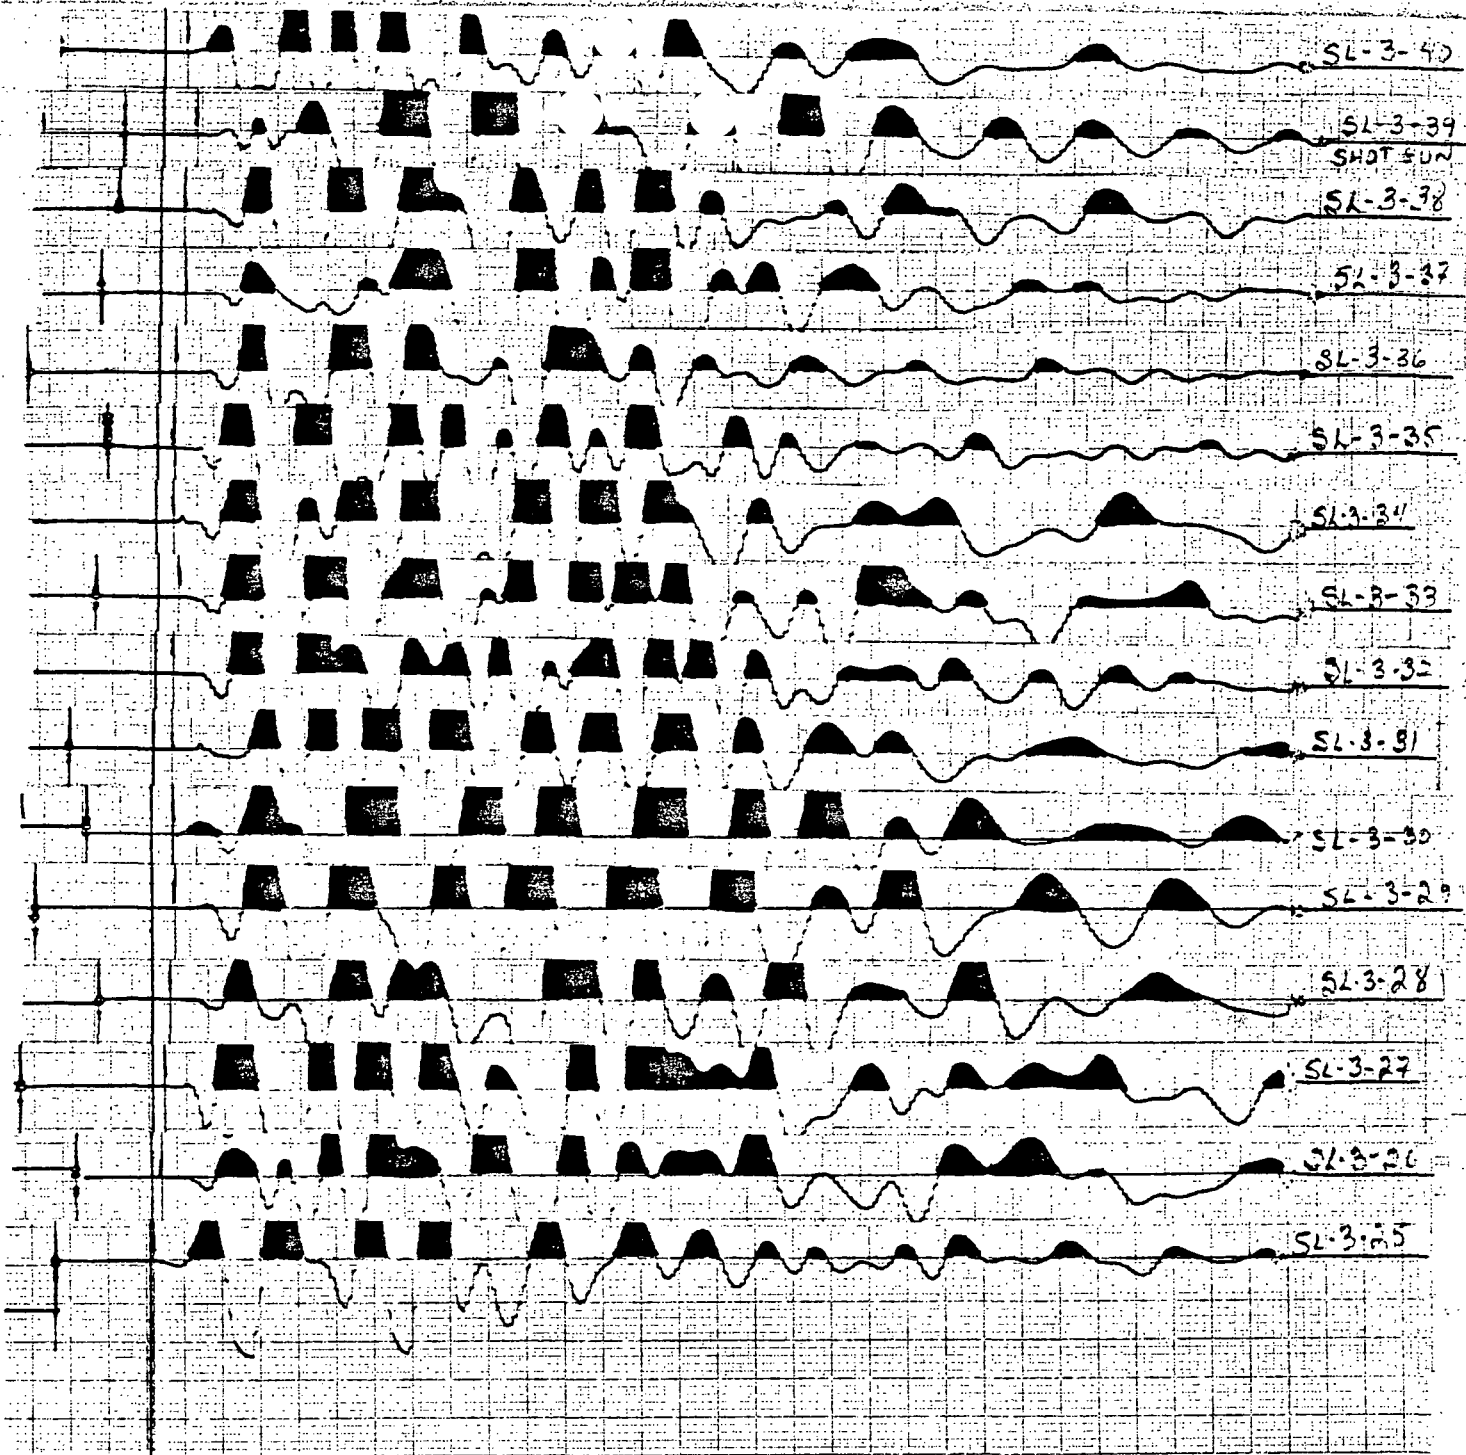 SL-3-40
SL-3-39
SHOT GUN
SL-3-38
SL-3-37
SL-3-36
SL-3-35
SL-3-34
SL-3-33
SL-3-32
SL-3-31
SL-3-30
SL-3-29
SL-3-28
SL-3-27
SL-3-26
SL-3-25